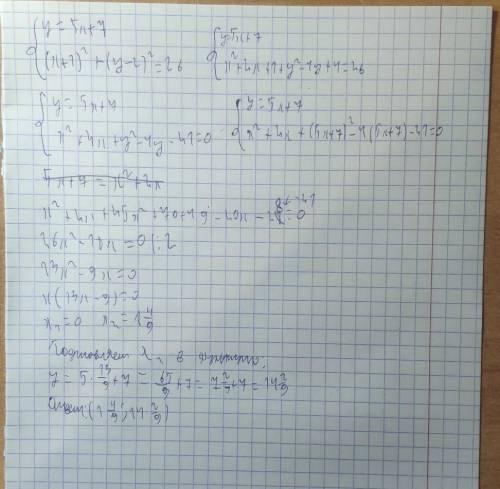 y = 5x+7
(x+1)² + (y-2)² = 26
y=5x+7
x²+2x+1+y²-4y+4=26
y = 5x+7
x²+2x+y²-4y-21=0
y = 5x+7
x²+2x+(5x+7)²-4(5x+7)-21=0
5x+7 = x²+2x
26x²-18x = 0 |:2
13x²-9x=0
x(13x-9)=0
x₁=0 x₂=1 4/9
Подставляем x₂ в
y = 5·13/9+7 = 65/9+7 = 7 2/9+7 = 14 2/9
Ответ: (1 4/9; 14 2/9)